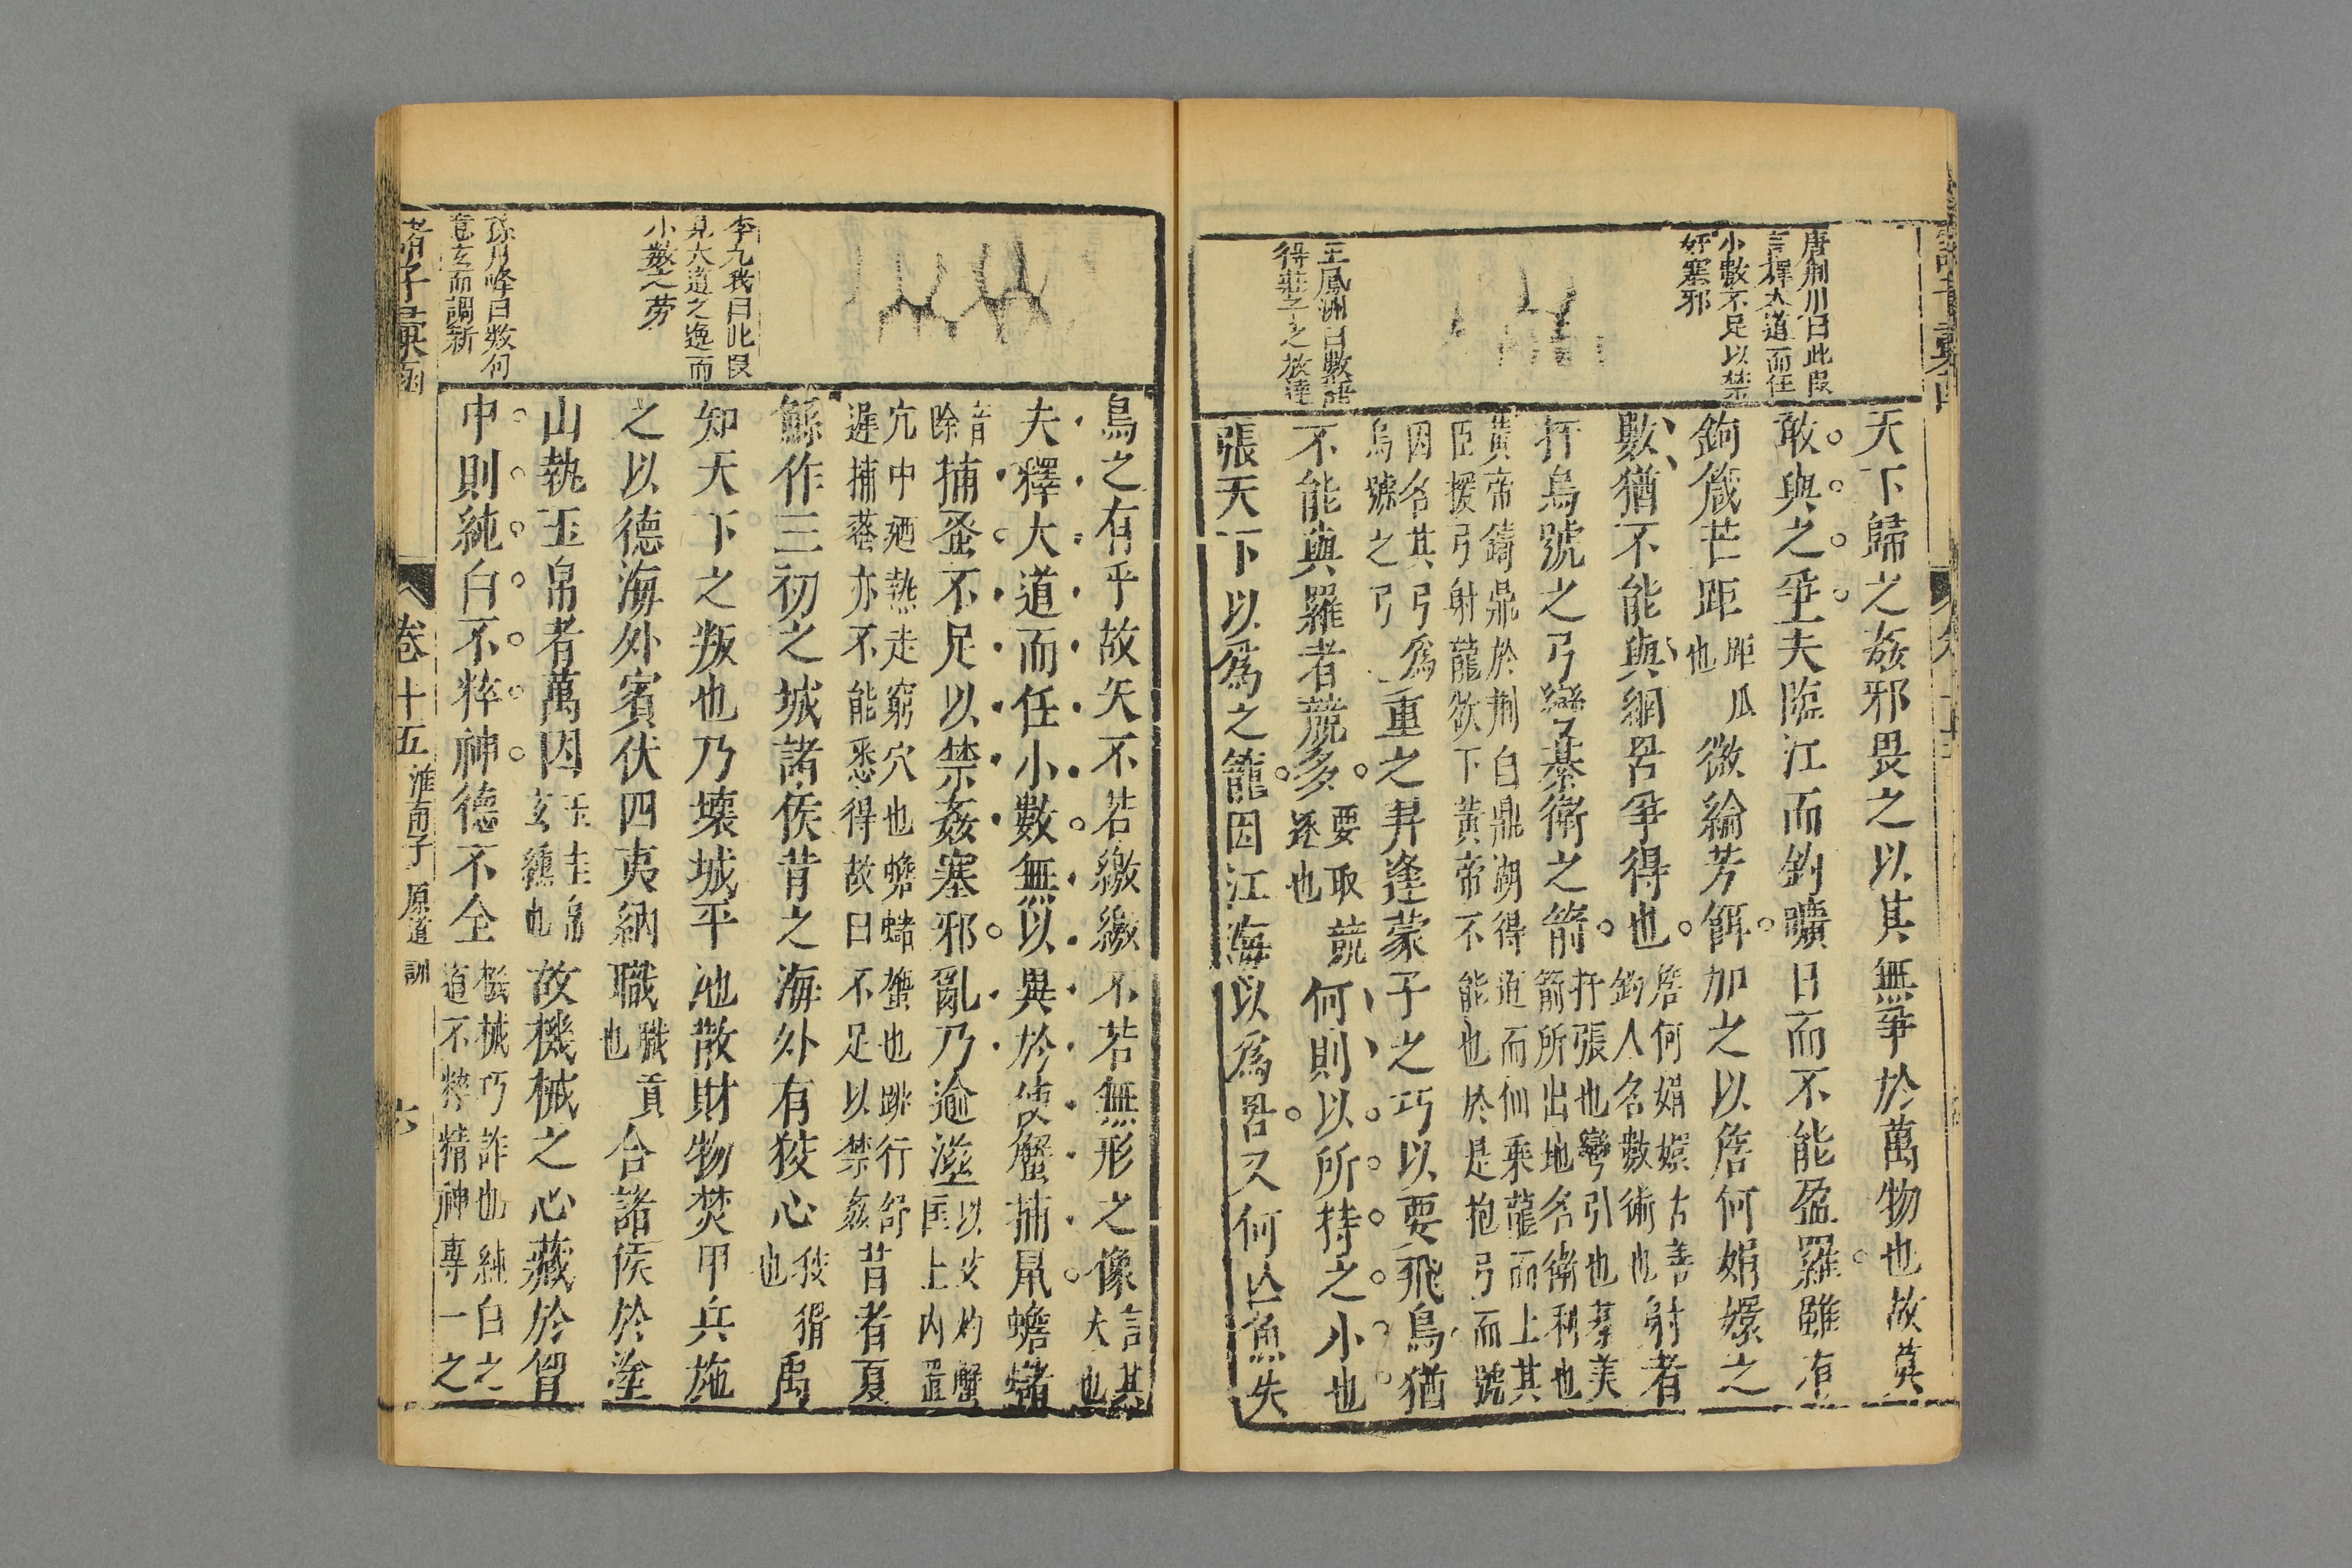 唐荆川曰此叚
言釋大道而任
小數不足以禁
奸塞邪
王鳳洲曰數語
得莊子之放達
天下歸之姦邪畏之以其無爭於萬物也故莫
敢與之爭夫臨江而釣曠日而不能盈羅雖有
鉤箴芒距距爪也微綸芳餌加之以詹何娟嬛之
數猶不能與網罟爭得也詹何娟嬛古善釣人名數術也射者
扞烏號之弓彎棊衛之箭扞張也彎引也棊美箭所出地名衛利也
黃帝鑄鼎於荆白鼎湖得道而仙乘龍而上其
臣援弓射龍欲下黃帝不能也於是抱弓而號
因名其弓爲烏號之弓重之羿逢蒙子之巧以要飛鳥猶
不能與羅者競多要取競逐也何則以所持之小也
張天下以爲之籠因江海以爲罟又何亾魚失
李九我曰此叚
見大道之逸而
小數之勞
孫月峰曰數句
意玄而調新
鳥之有乎故矢不若繳繳不若無形之像言其大也
夫釋大道而任小數無以異於使蟹捕鼠蟾蠩
音除捕蚤不足以禁姦塞邪亂乃逾滋以艾灼蟹匡上內置
穴中廼熱走窮穴也蟾蠩蟹也跳行舒
遲捕蚤亦不能悉得故曰不足以禁姦昔者夏
鯀作三初之城諸侯昔之海外有狡心狡猾也禹
知天下之叛也乃壞城平池散財物焚甲兵施
之以德海外賓伏四夷納職職貢也合諸侯於塗
山執玉帛者萬因玉圭帛玄纁也故機械之心藏於胷
中則純白不粹神德不全機械巧詐也純白之道不粹精神專一之
諸子彙函
卷十五
淮南子
原道訓
六